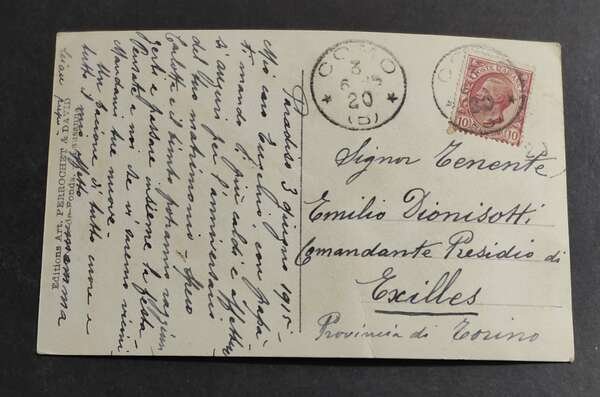 Paradiso 3 giugno 1915 -
Mio caro Emilio, con papà
ti mando i più caldi e affettuosi
auguri per l'anniversario
del tuo matrimonio - Spero
Carlotta e il bimbo potranno raggiun
gerti e passare insieme la festa
Pensate a noi che vi siamo vicini
Mandami tue nuove -
Un bacione di tutto cuore e
tutto l'affetto
mamma
Editions Art. PERROCHET & DAVID
COMO
3
6 15
20
(D)
CO
20
10
10
Signor Tenente
Emilio Dionisotti
Comandante Presidio di
Exilles
Provincia di Torino